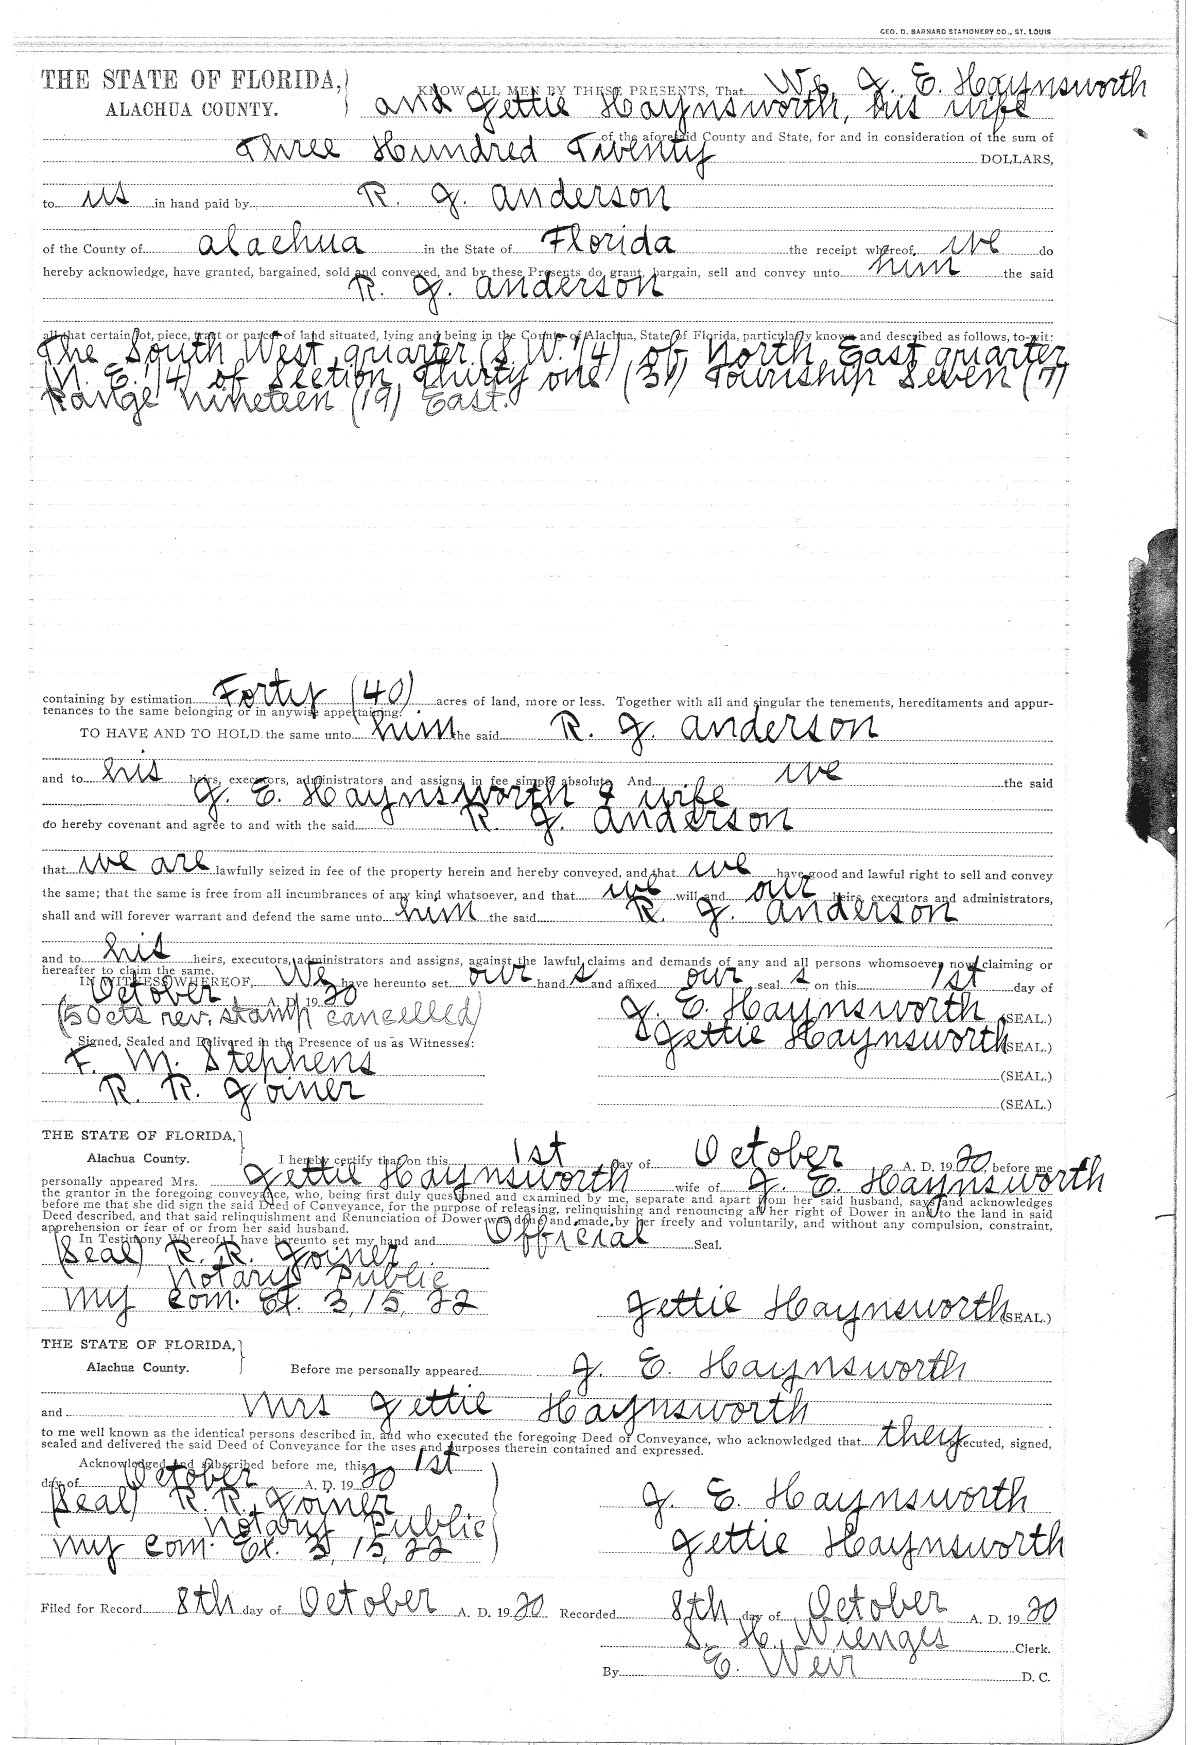 GEO. D. BARNARD STATIONERY CO., ST. LOUIS
THE STATE OF FLORIDA,
ALACHUA COUNTY.
KNOW ALL MEN BY THESE PRESENTS, That We, J. E. Haynsworth
and Gettie Haynsworth, his wife
of the aforesaid County and State, for and in consideration of the sum of
Three Hundred Twenty DOLLARS,
to us in hand paid by R. J. Anderson
of the County of Alachua in the State of Florida the receipt whereof, we do
hereby acknowledge, have granted, bargained, sold and conveyed, and by these Presents do grant, bargain, sell and convey unto him the said
R. J. Anderson
all that certain lot, piece, tract or parcel of land situated, lying and being in the County of Alachua, State of Florida, particularly known and described as follows, to-wit:
The South West quarter (S.W. 1/4) of North East quarter
N. E. 1/4) of Section Thirty one (31) Township Seven (7)
Range nineteen (19) East.
containing by estimation Forty (40) acres of land, more or less. Together with all and singular the tenements, hereditaments and appur-
tenances to the same belonging or in anywise appertaining.
TO HAVE AND TO HOLD the same unto him the said R. J. Anderson
and to his heirs, executors, administrators and assigns, in fee simple absolute. And we the said
J. E. Haynsworth & wife
do hereby covenant and agree to and with the said R. J. Anderson
that we are lawfully seized in fee of the property herein and hereby conveyed, and that we have good and lawful right to sell and convey
the same; that the same is free from all incumbrances of any kind whatsoever, and that we will and our heirs, executors and administrators,
shall and will forever warrant and defend the same unto him the said R. J. Anderson
and to his heirs, executors, administrators and assigns, against the lawful claims and demands of any and all persons whomsoever now claiming or
hereafter to claim the same.
IN WITNESS WHEREOF, We have hereunto set our hand s and affixed our seal s on this 1st day of
October A. D. 19 20
(50cts rev. stamp cancelled) J. E. Haynsworth (SEAL.)
Signed, Sealed and Delivered in the Presence of us as Witnesses: Gettie Haynsworth (SEAL.)
F. M. Stephens (SEAL.)
R. R. Joiner (SEAL.)
THE STATE OF FLORIDA,
Alachua County.
I hereby certify that on this 1st day of October A. D. 19 20, before me
personally appeared Mrs. Gettie Haynsworth wife of J. E. Haynsworth
the grantor in the foregoing conveyance, who, being first duly questioned and examined by me, separate and apart from her said husband, says and acknowledges
before me that she did sign the said Deed of Conveyance, for the purpose of releasing, relinquishing and renouncing all her right of Dower in and to the land in said
Deed described, and that said relinquishment and Renunciation of Dower was done and made by her freely and voluntarily, and without any compulsion, constraint,
apprehension or fear of or from her said husband.
In Testimony Whereof I have hereunto set my hand and Official Seal.
(Seal) R. R. Joiner
Notary Public
My Com. Ex. 3, 15, 22 Gettie Haynsworth (SEAL.)
THE STATE OF FLORIDA,
Alachua County.
Before me personally appeared J. E. Haynsworth
and Mrs Gettie Haynsworth
to me well known as the identical persons described in, and who executed the foregoing Deed of Conveyance, who acknowledged that they executed, signed,
sealed and delivered the said Deed of Conveyance for the uses and purposes therein contained and expressed.
Acknowledged and subscribed before me, this 1st
day of October A. D. 19 20
(Seal) R. R. Joiner J. E. Haynsworth
Notary Public
My Com. Ex. 3, 15, 22 Gettie Haynsworth
Filed for Record 8th day of October A. D. 19 20 Recorded 8th day of October A. D. 19 20
S. H. Wienges Clerk.
By E. Weir D. C.